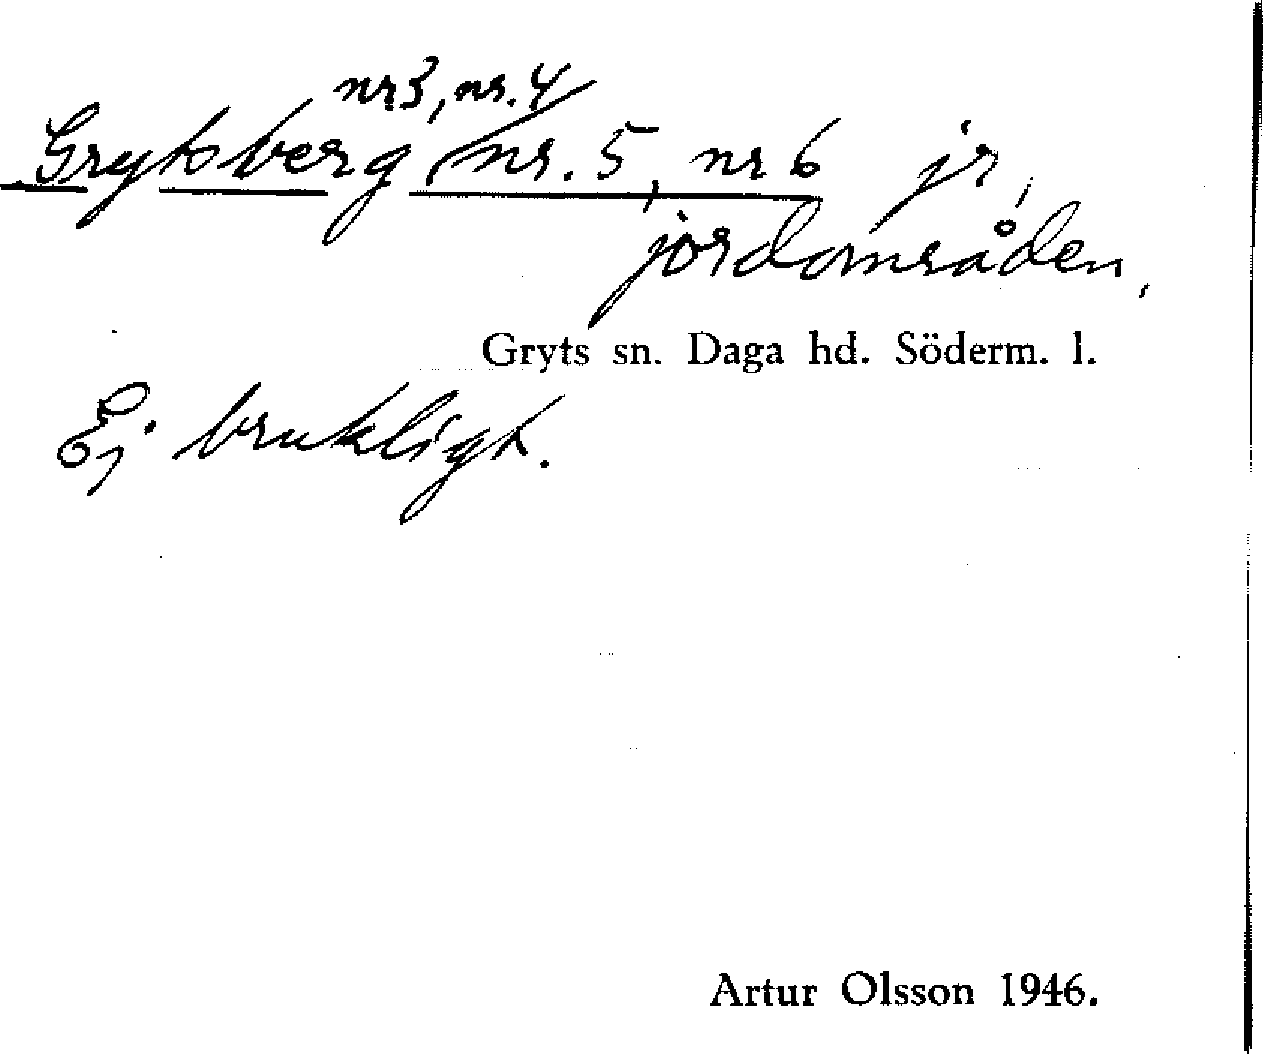 nr3, nr. 4
Grytsberg nr. 5, nr 6 jr,
jordområden,
Gryts sn. Daga hd. Söderm. l.
Ej brukligt.
Artur Olsson 1946.